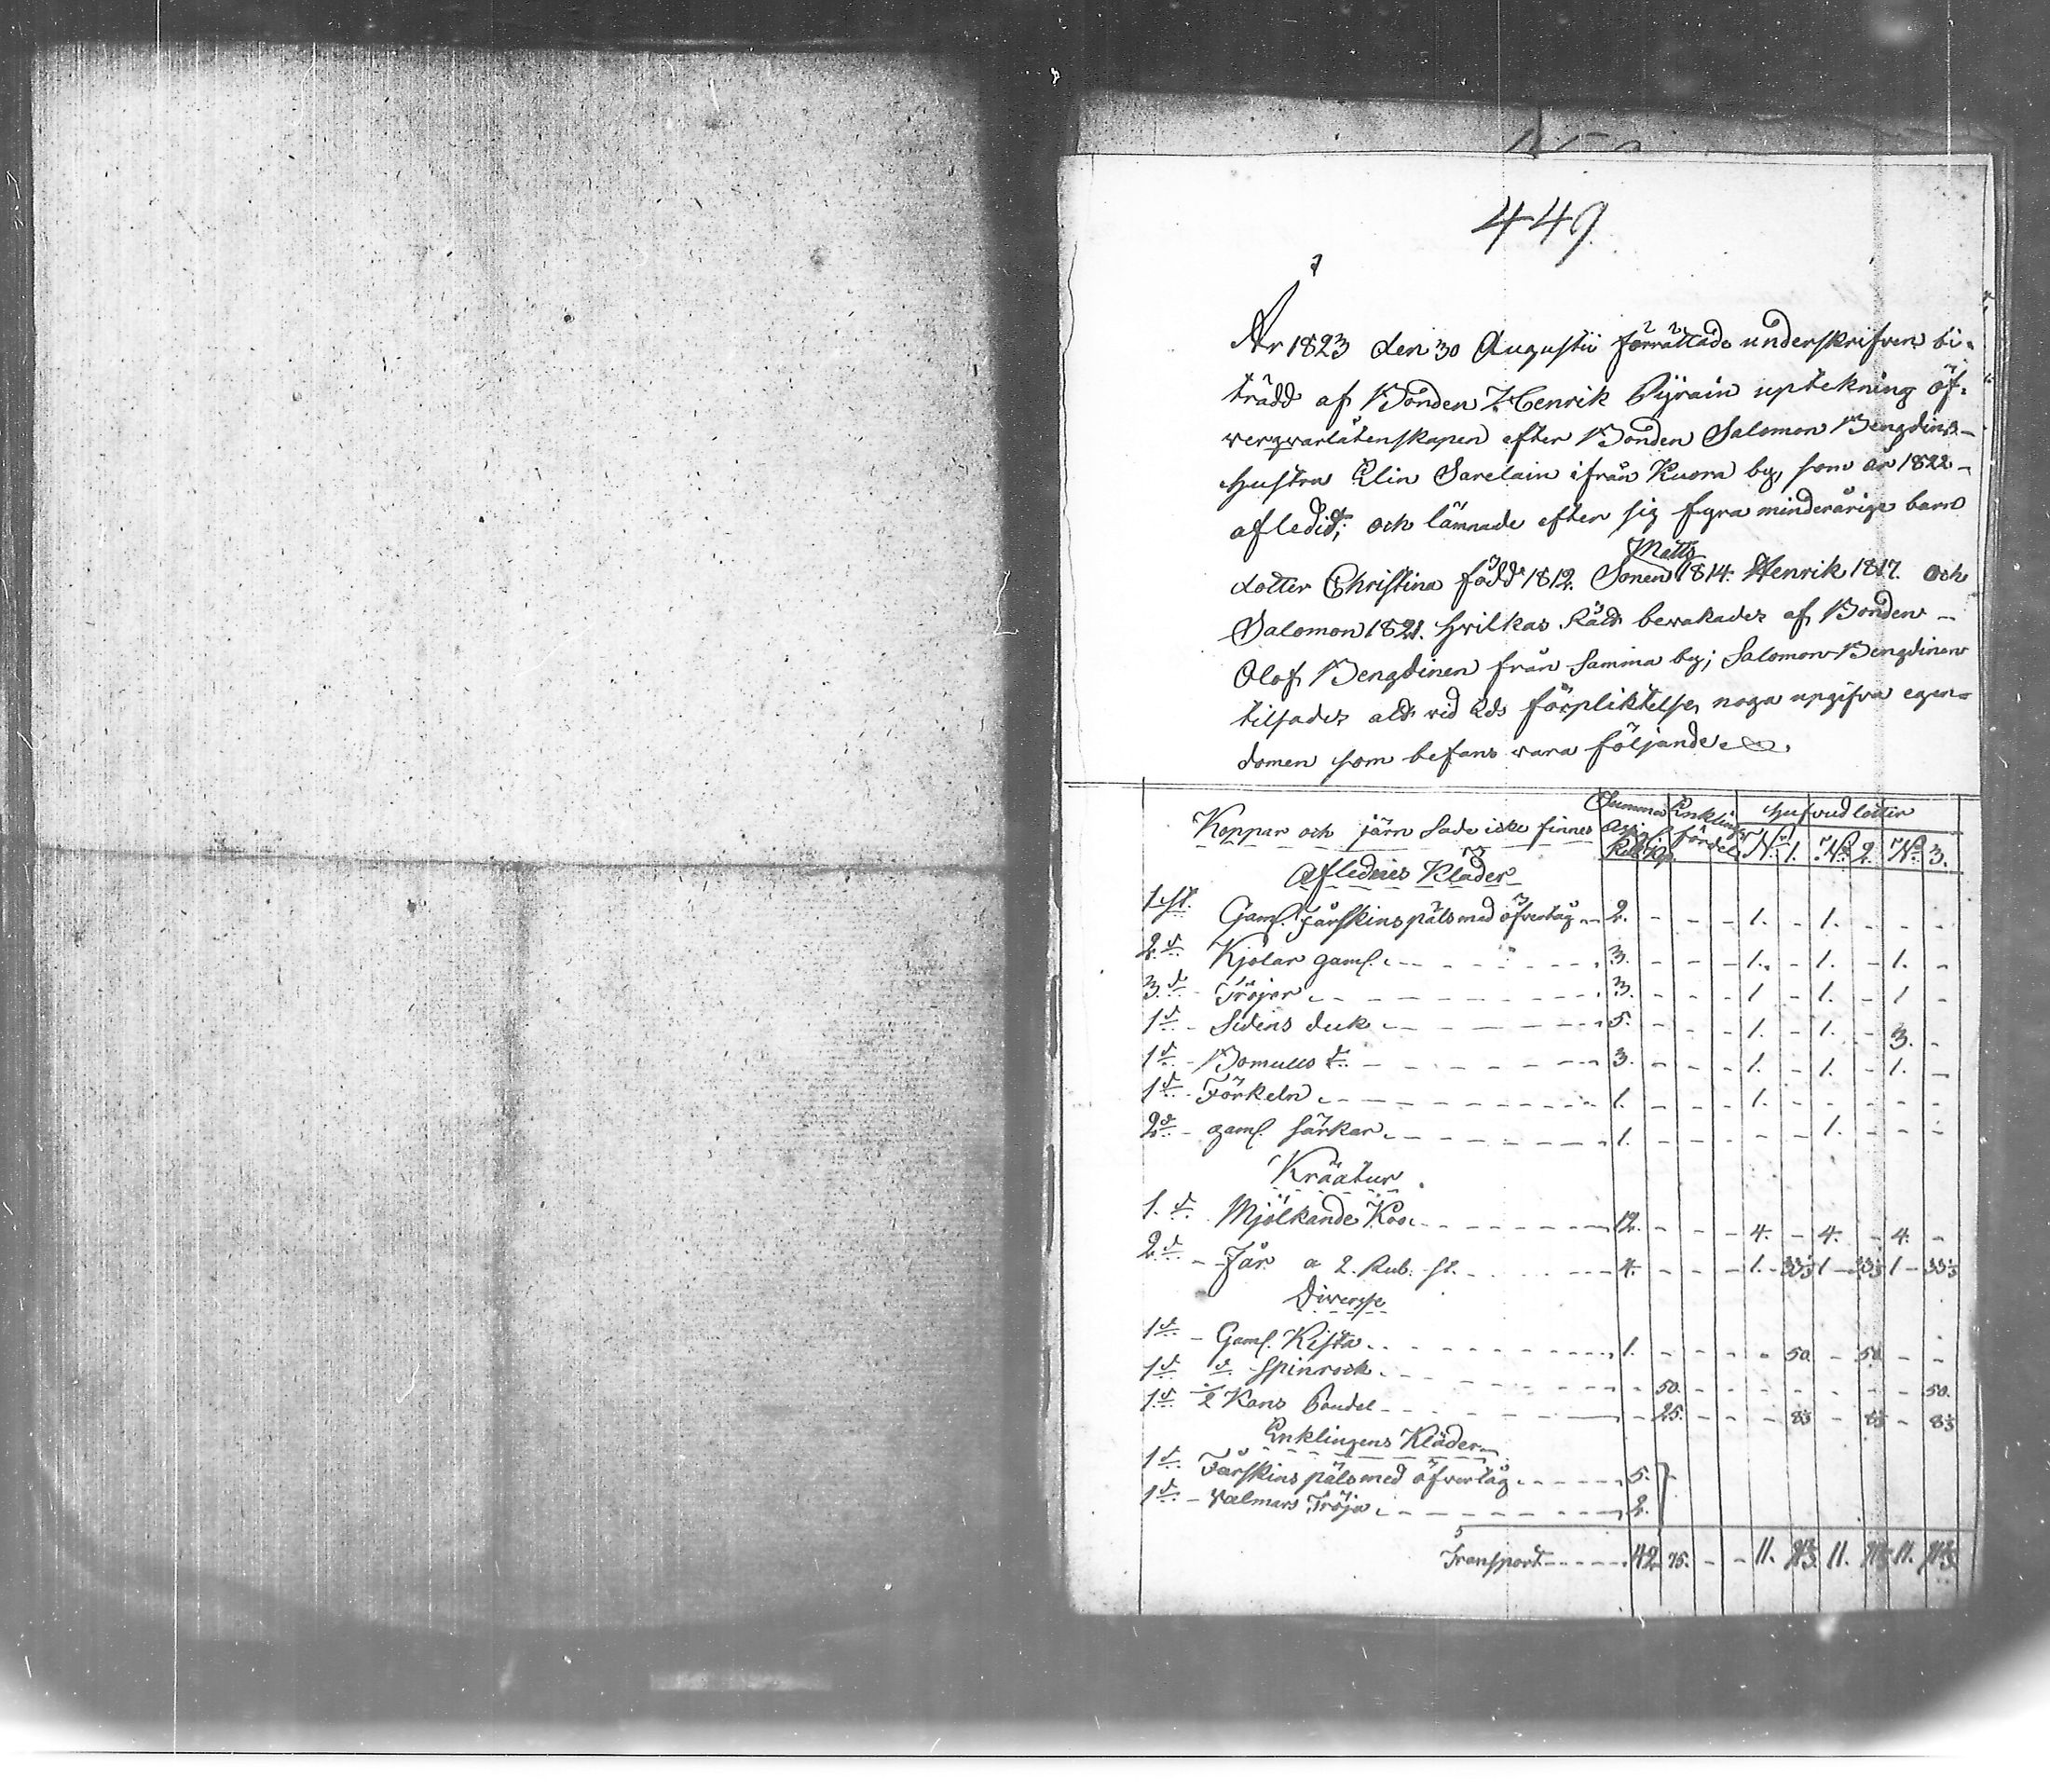 449.
År 1823 den 30 Augustii förrättade underskrifven bi-
trädd af Bonden Henrik Pyräin uptekning öf-
werqvarlåtenskapen efter Bonden Salomon Bengdins
hustru Elin Sarelain ifrån Kuora by, som år 1822
afledit; och lämnade efter sig fyra minderårige barn
Matts
dotter Christina född 1812. Sonen 1814. Henrik 1817. och
Salomon 1821. hvilkas Rätt bevakades af Bonden
Olof Bengdinen från samma by; Salomon Bengdinen
tilsades alt vid Eds förpliktelse, noga upgifva egen-
domen som befans vara följande
Koppar och järn sade icke finnes Summa Enklings fördel Hufvudlotter
Rub. Kop. No. 1. No. 2. No. 3.
Aflednes Kläder
1 st. Gaml. Fårskins päls med öfvertåg 2. 1. 1.
2 d: Kjolar gaml. 3. 1. 1. 1.
3 d: Tröjor 3. 1 1. 1
1 d: Sidens duk 5. 1. 1. 3.
1 d: Bomulls d: 3. 1. 1. 1.
1 d: Förkeln 1. 1.
2 d: gaml. särkar 1. 1.
Kräatur
1. d: Mjölkande Koo 12. 4. 4. 4.
2 d: Får a 2. Rub. st. 4. 1. 33⅓ 1 33⅓ 1 33⅓
Diverse
1 d: Gaml. Kista 1. 50. 50.
1 d: d: Spinrock 50. 50.
1 d: ½ Kans Boudel 25. 8⅓ 8⅓ 8⅓
Enklingens Kläder
1 d: Fårskins päls med öfvertåg 5.
1 d: Valmars Tröja 2.
Transport 42 75. 11. 11. 11.